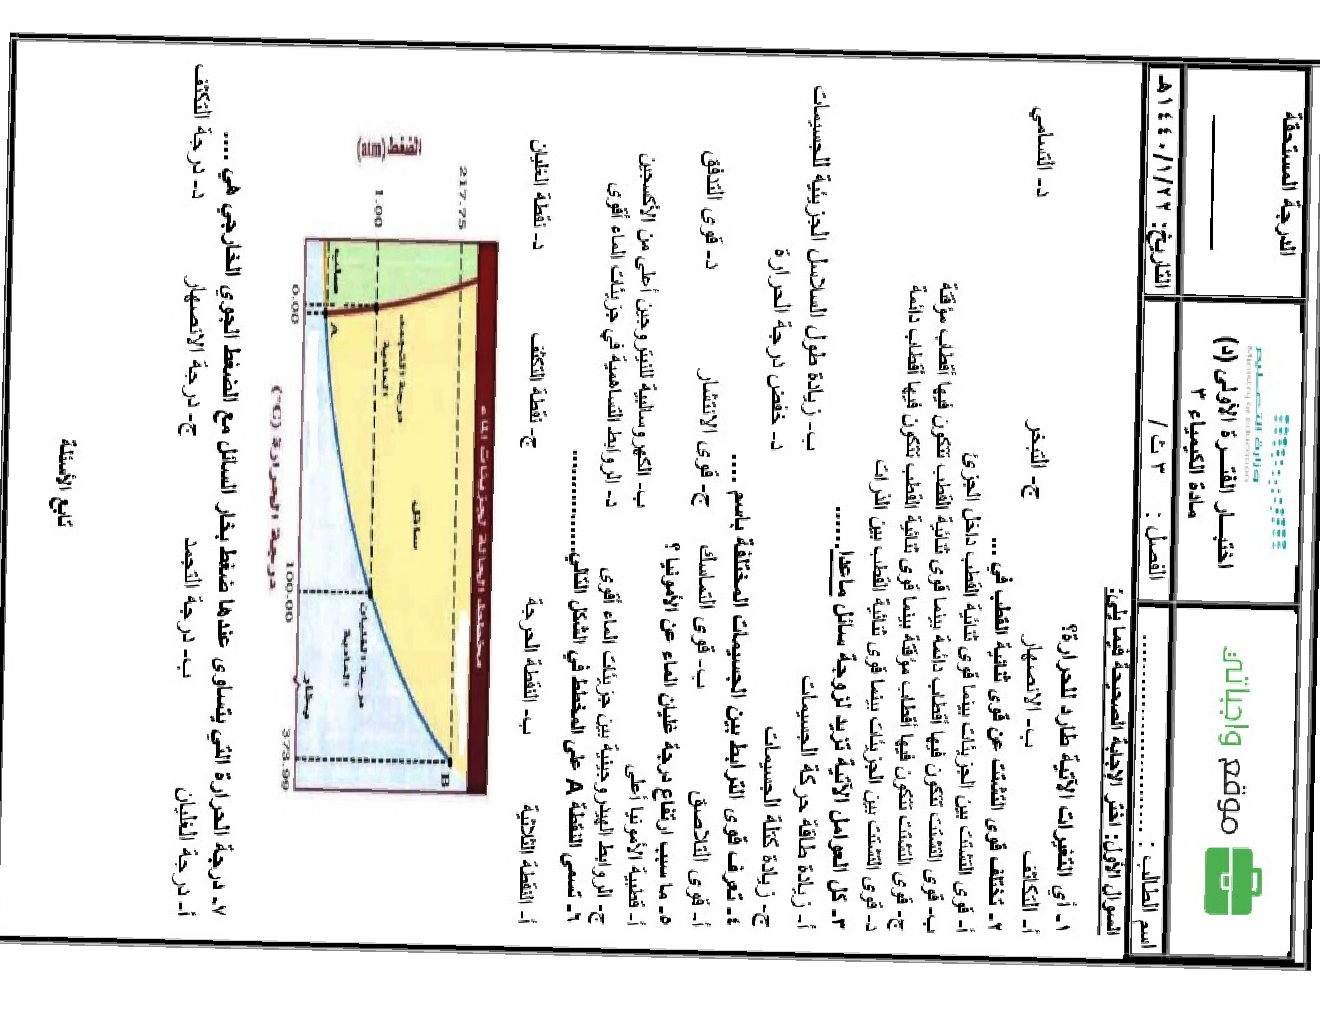 الدرجة المستحقة
وزارة التعليم
Ministry of Education
اختبار الفترة الأولى (د)
مادة الكيمياء ٣
موقع واجباتي
اسم الطالب : ............................
الفصل : ٣ ث /
التاريخ: ١٤٤٠/١/٢٢هـ
السؤال الأول: اختر الإجابة الصحيحة فيما يلي:
١ـ أي التغيرات الآتية طارد للحرارة؟
أ- التكاثف ب- الانصهار ج- التبخر د- التسامي
٢ـ تختلف قوى التشتت عن قوى ثنائية القطب في ...
أ- قوى التشتت بين الجزيئات بينما قوى ثنائية القطب داخل الجزئ
ب- قوى التشتت تتكون فيها أقطاب دائمة بينما قوى ثنائية القطب تتكون فيها أقطاب مؤقتة
ج- قوى التشتت تتكون فيها أقطاب مؤقتة بينما قوى ثنائية القطب تتكون فيها أقطاب دائمة
د- قوى التشتت بين الجزيئات بينما قوى ثنائية القطب بين الذرات
٣ـ كل العوامل الآتية تزيد لزوجة سائل ماعدا......
أ- زيادة طاقة حركة الجسيمات ب- زيادة طول السلاسل الجزيئية للجسيمات
ج- زيادة كتلة الجسيمات د- خفض درجة الحرارة
٤ـ تعرف قوى الترابط بين الجسيمات المختلفة باسم ....
أ- قوى التلاصق ب- قوى التماسك ج- قوى الانتشار د- قوى التدفق
٥ـ ما سبب ارتفاع درجة غليان الماء عن الأمونيا ؟
أ- قطبية الأمونيا أعلى ب- الكهروسالبية للنيتروجين أعلى من الأكسجين
ج- الروابط الهيدروجينية بين جزيئات الماء أقوى د- الروابط التساهمية في جزيئات الماء أقوى
٦ـ تسمى النقطة A على المخطط في الشكل التالي..............
أ- النقطة الثلاثية ب- النقطة الحرجة ج- نقطة التكثف د- نقطة الغليان
مخطط الحالة لجزيئات الماء
الضغط (atm)
217.75
1.00
صلب
سائل
بخار
درجة التجمد العادية
درجة الغليان العادية
A
B
0.00
100.00
373.99
درجة الحرارة (°C)
٧ـ درجة الحرارة التي يتساوى عندها ضغط بخار السائل مع الضغط الجوي الخارجي هي ....
أ- درجة الغليان ب- درجة التجمد ج- درجة الانصهار د- درجة التكثف
تابع الأسئلة